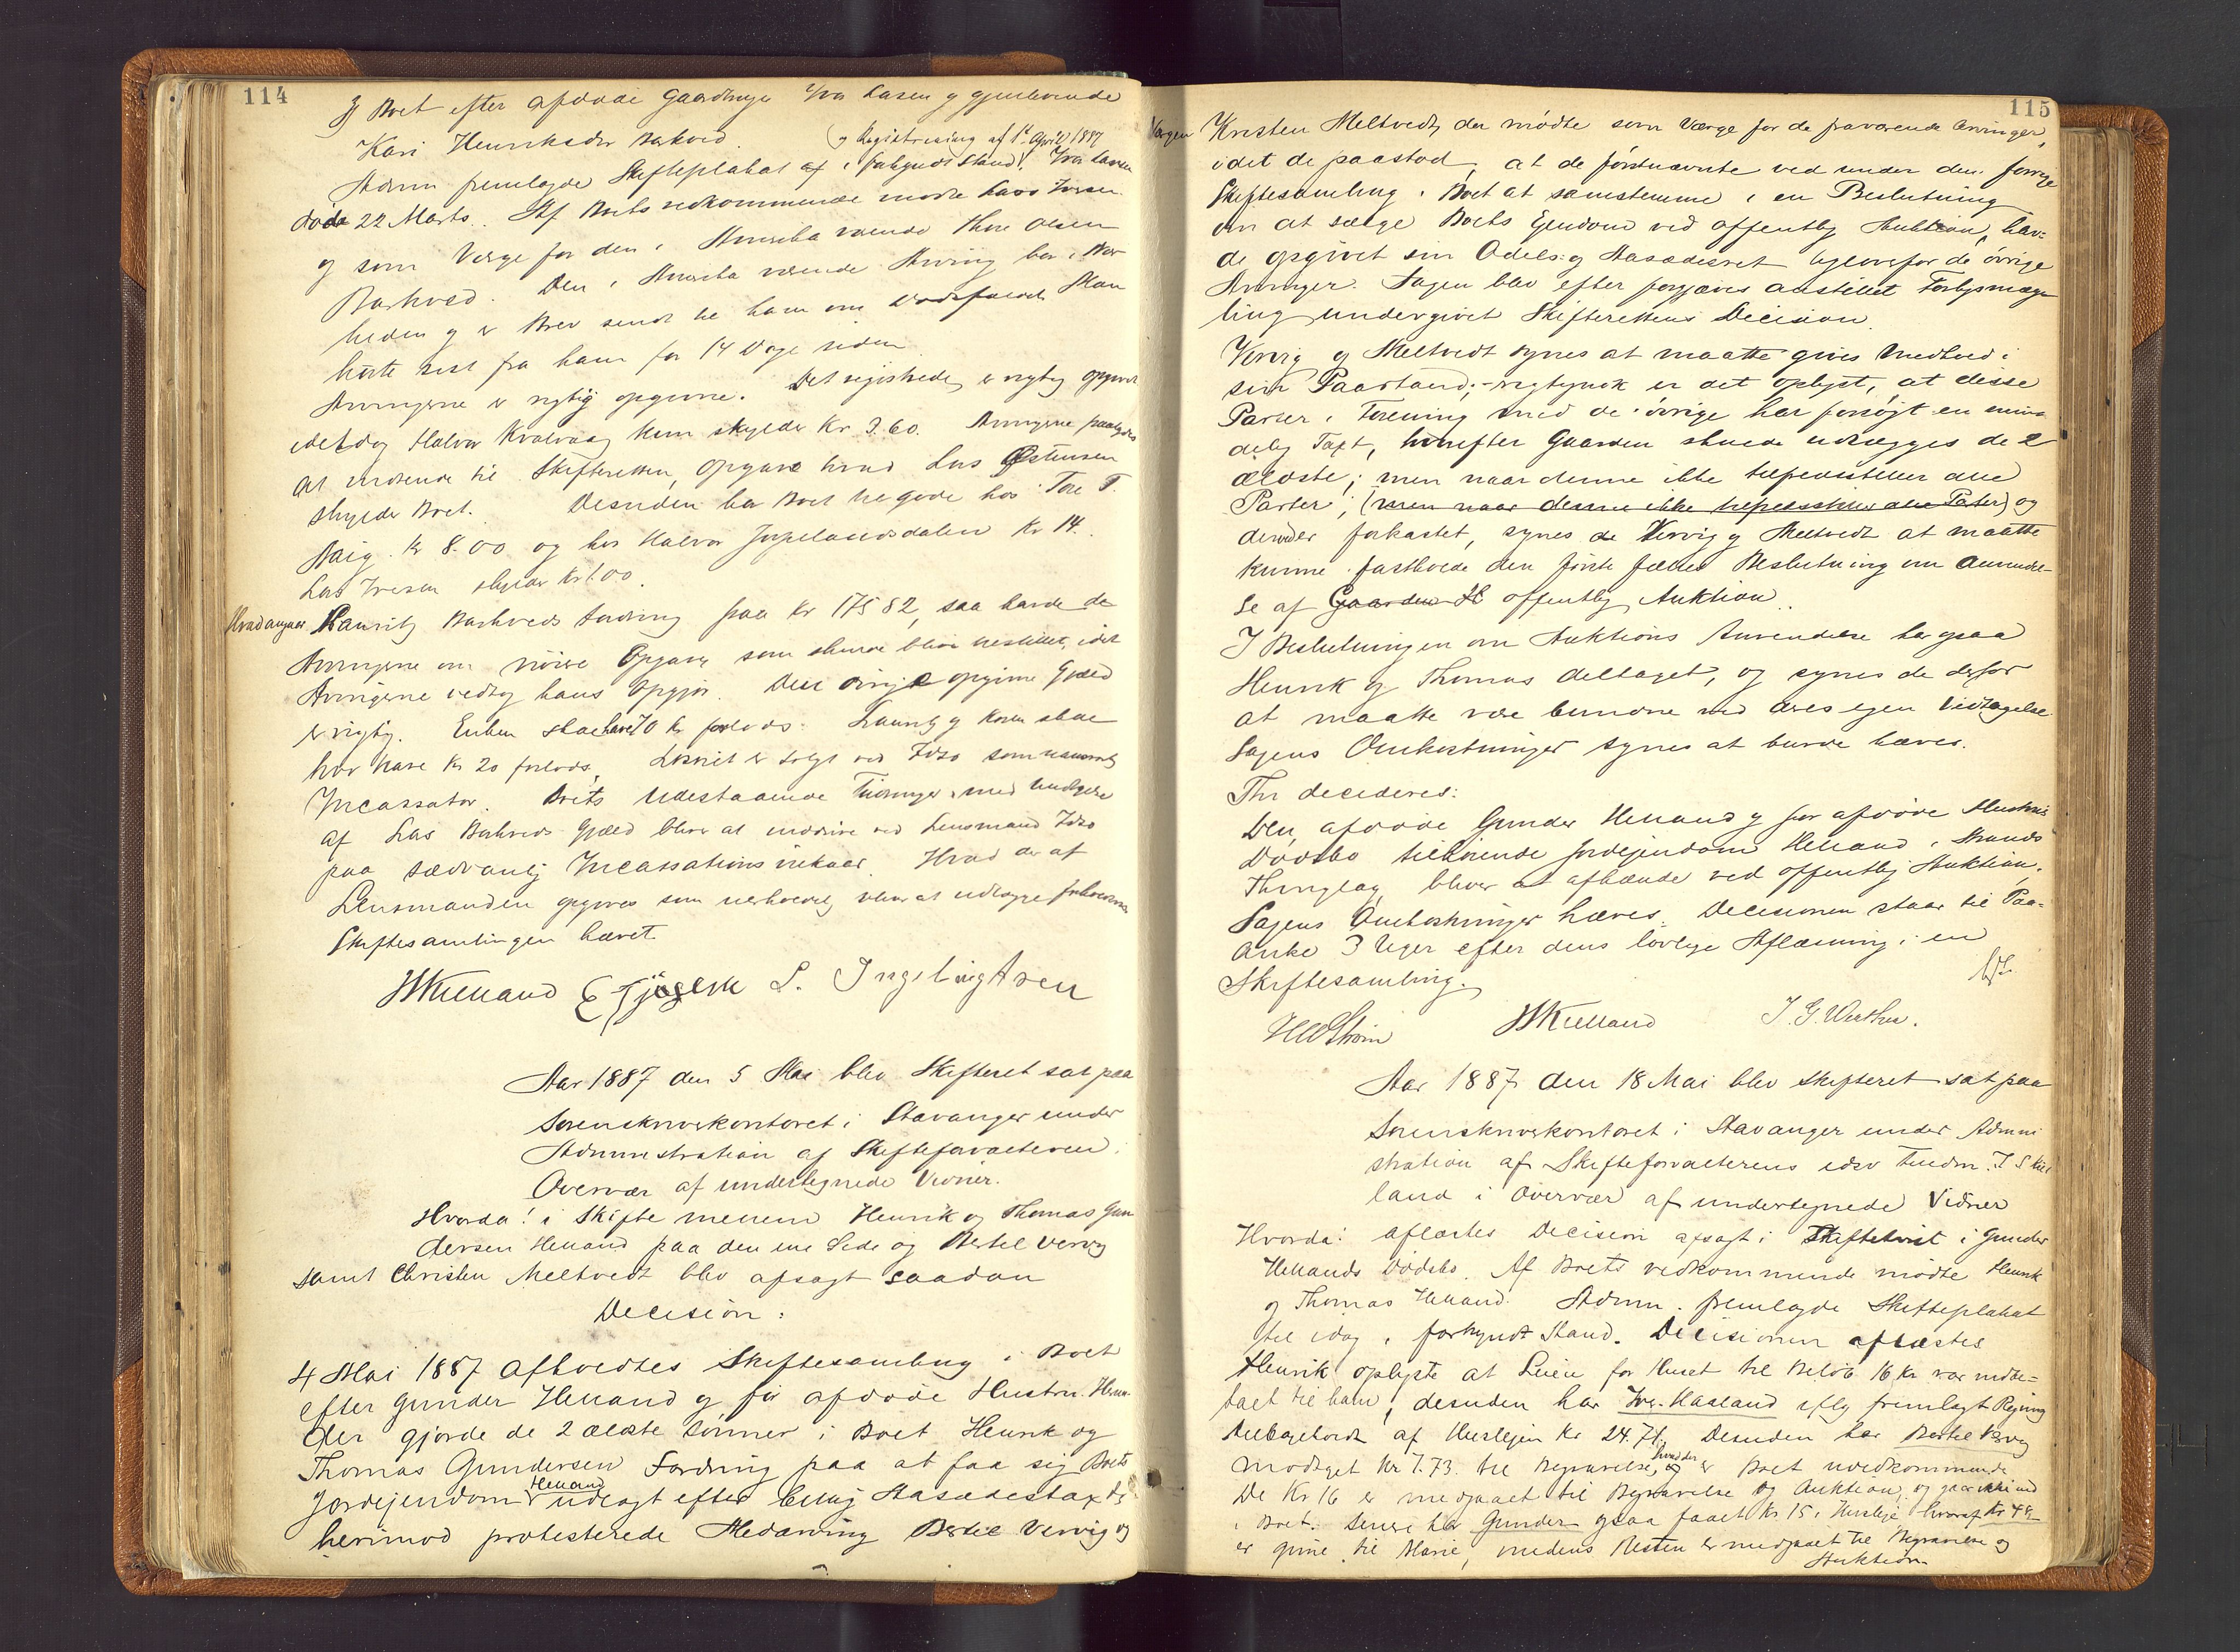 114
I Boet efter afdøde Gaardbruger Iver Larsen og gjenlevende
Kari Henriksdtr Barkved.
og Registrering af 1ste April 1887
Admin fremlagde Skifteplakat i forkyndt Stand. Iver Larsen
døde 22 Marts. Af Boets vedkommende mødte Lars Iversen
og som Verge for den i Amerika værende Thore Olsen
Barkved. Den i Amerika værende Arving bor i Nær
heden og er Brev sendt til ham om Dødsfaldet. Man
hørte sist fra ham for 14 Dage siden
Arvingerne er rigtig opgivne. Det registrerede er rigtig opgivet
idet dog Halvor Kvalvaag kun skylder Kr 3.60. Arvingerne paalagdes
at indsende til Skifteretten Opgave hvad Lars Østensen
skylder Boet. Desuden har Boet tilgode hos Tore T.
Kr 8.00 og hos Halvor Jøpelandsdalen Kr 14.
Lars Iversen skylder Kr 1.00.
Hvad angaar Lauritz Barkveds Fordring paa Kr 175 82, saa havde de
Arvingerne om nøiere Opgave som skulde blive bestilt, idet
Arvingerne vedtog hans Opgjør. Den øvrige opgivne Gjæld
er rigtig. Enken skal have 70 Kr forlods. Lauritz og Karen skal
hver have Kr 20 forlods. Løsøret er solgt ved Idsø som
Incassator. Boets Udestaaende Fordringer med Undtagelse
af Lars Barkveds Gjæld bliver at inddrive ved Lensmand Idsø
paa sædvanlig Incassationsvilkaar. Hvad der af
Lensmanden opgives som uerholdelig bliver at udlægge
Skiftesamlingen hævet.
JSKielland L. Ingebrigtsen
Aar 1887 den 5 Mai blev Skifteret sat paa
Sorenskriverkontoret i Stavanger under
Administration af Skifteforvalteren i
Overvær af undertegnede Vidner.
Hvorda! i Skifte mellem Henrik og Thomas Gun
dersen Helland paa den ene Side og Bertel Vervig
samt Christen Meltvedt blev afsagt saadan
Decision:
4 Mai 1887 afholdtes Skiftesamling i Boet
efter Gunder Helland og før afdøde Hustru. Her
der gjorde de 2 ældste Sønner i Boet Henrik og
Thomas Gundersen Fordring paa at faa sig Boets
Helland
Jordejendom udlagt efter billig Aasædestaxt
herimod protesterede Medarving Bertel Vervig og
115
Vergen Kristen Meltvedt, der mødte som Verge for de fraværende Arvinger,
idet de paastod, at de førstnævnte ved under den forrige
Skiftesamling i Boet at samstemme i en Beslutning
om at sælge Boets Ejendom ved offentlig Auktion, hav-
de opgivet sin Odels- og Aasædesret ligeoverfor de øvrige
Arvinger. Sagen blev efter forgjæves anstillet Forligsmæg-
ling undergivet Skifterettens Decision.
Vervig og Meltvedt synes at maatte gives Medhold i
sin Paastand;- rigtignok er det oplyst, at disse
Parter i Forening med de øvrige har forsøgt en minde
delig Taxt, hvorefter Gaarden skulde udlægges de 2
ældste; men naar denne ikke tilfredsstiller alle
Parter, (men naar denne ikke tilfredsstiller alle Parter) og
derved er forkastet, synes de Vervig og Meltvedt at maatte
kunne fastholde den først fældte Beslutning om Anvendel-
se af Gaarden H offentlig Auktion.
I Beslutningen om Auktions Anvendelse har ogsaa
Henrik og Thomas deltaget, og synes de derfor
at maatte være bundne ved deres egen Vedtagelse
Sagens Omkostninger synes at burde hæves.
Thi decideres:
Den, afdøde Gunder Helland og før afdøde Hustrus
Dødsbo tilhørende Jordejendom Helland i Strands
Thinglag, bliver at afhænde ved offentlig Auktion.
Sagens Omkostninger hæves. Decisionen staar til Paa-
anke 3 Uger efter dens lovlige Aflæsning i en
Skiftesamling.
JSKielland J. G. Werther.
Aar 1887 den 18 Mai blev Skifteret sat paa
Sorenskriverkontoret i Stavanger under Admini
stration af Skifteforvalterens edsv Fuldm. J S Kiel
land i Overvær af undertegnede Vidner
Hvorda: aflæstes Decision afsagt i Skiftetvist i Gunder
Hellands Dødsbo. Af Boets vedkommende mødte Henrik
og Thomas Helland. Admin. fremlagde Skifteplakat
til idag i forkyndt Stand. Decisionen aflæstes
Henrik oplyste at Leien for Huset til Beløb 16 Kr var indbe-
talt til ham, desuden har Ivr. Hasland iflg fremlagt Regning
tilbageholdt af Huslejen Kr 24.71. Desuden har Bertel Vervig
modtaget Kr 7.73 til Begravelse, hvad der er Boet uvedkommende
De Kr 16 er medgaaet til Begravelse og Auktion, og gaar ikke ind
i Boet. Senere har Gunder ogsaa faaet Kr 15 i Husleje hvoraf Kr 4
er givne til Marie, medens Resten er medgaaet til Begravelse og
Auktion